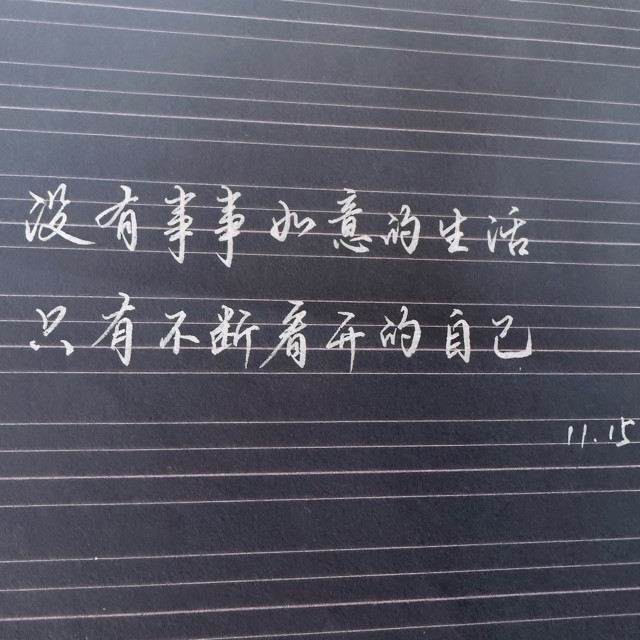 没有事事如意的生活
只有不断看开的自己
11.15